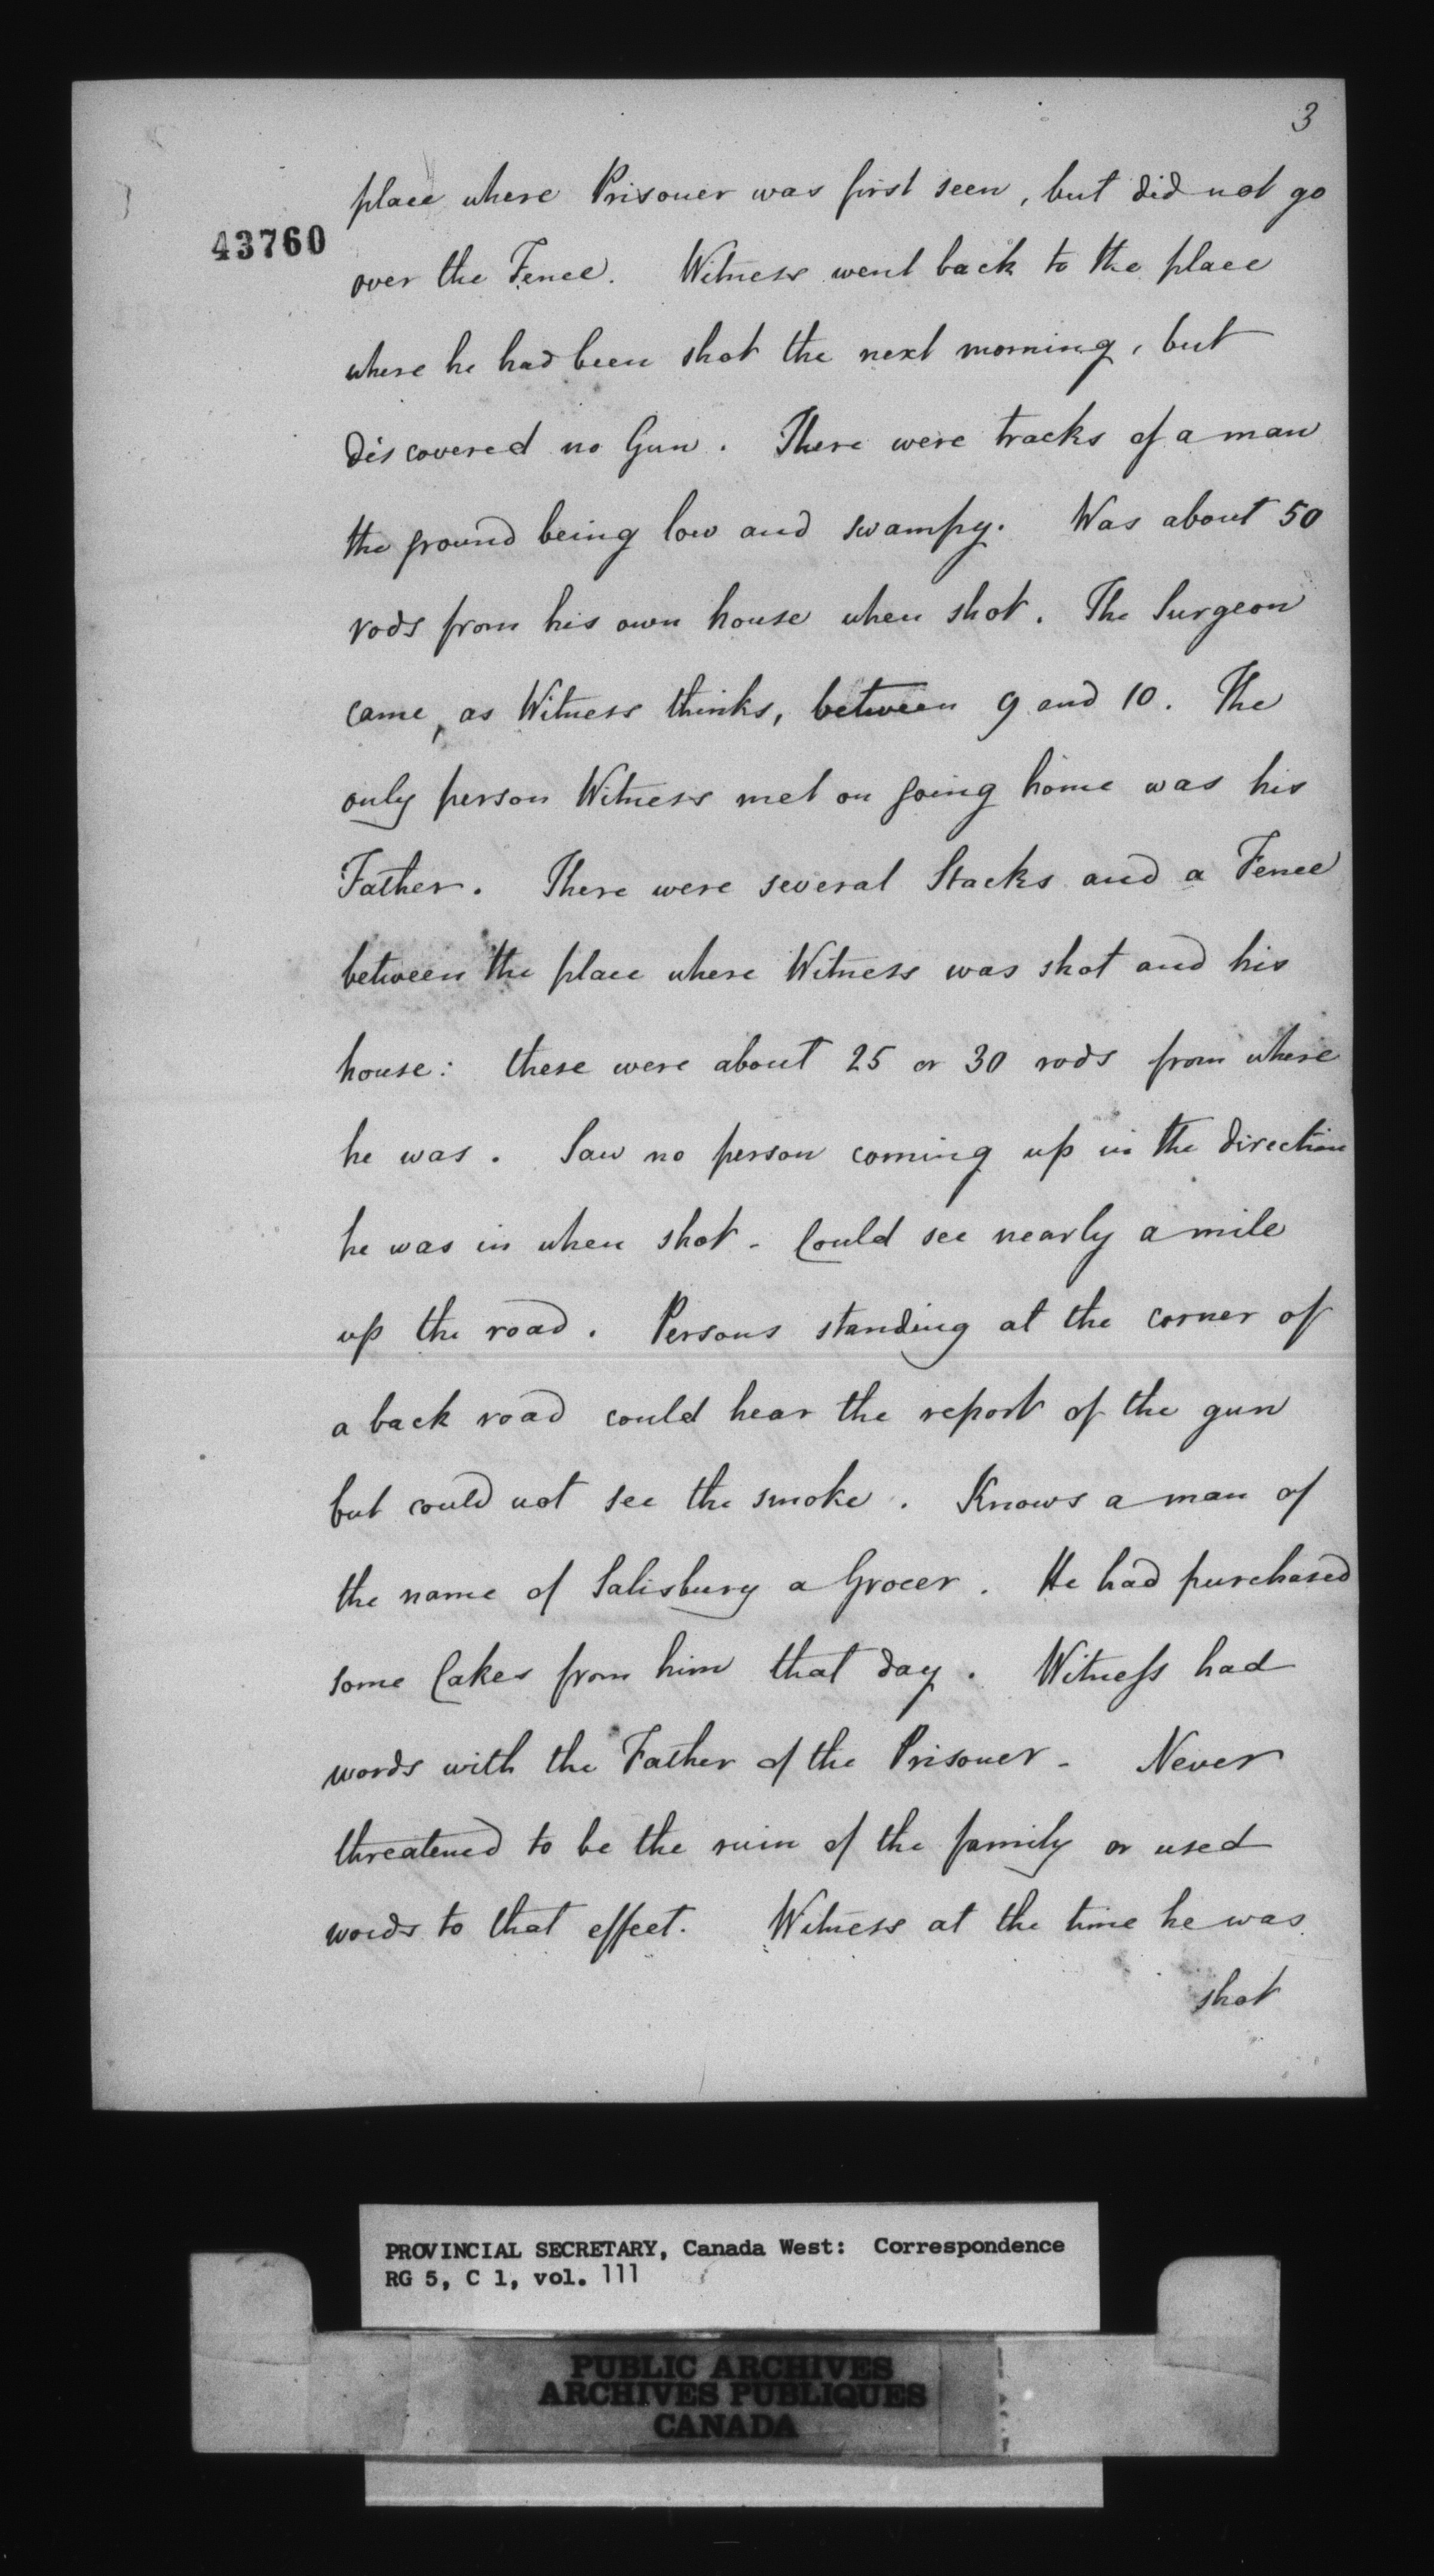 3
43760
place where Prisoner was first seen, but did not go
over the Fence. Witness went back to the place
where he had been shot the next morning, but
discovered no Gun. There were tracks of a man
the ground being low and swampy. Was about 50
rods from his own house when shot. The Surgeon
came, as Witness thinks, between 9 and 10. The
only person Witness met on going home was his
Father. There were several Stacks and a Fence
between the place where Witness was shot and his
house: these were about 25 or 30 rods from where
he was. Saw no person coming up in the direction
he was in when shot - Could see nearly a mile
up the road. Persons standing at the corner of
a back road could hear the report of the gun
but could not see the smoke. Knows a man of
the name of Salisbury a Grocer. He had purchased
some Cakes from him that day. Witness had
words with the Father of the Prisoner - Never
threatened to be the ruin of the family or used
words to that effect. Witness at the time he was
shot
PROVINCIAL SECRETARY, Canada West: Correspondence
RG 5, C 1, vol. 111
PUBLIC ARCHIVES
ARCHIVES PUBLIQUES
CANADA